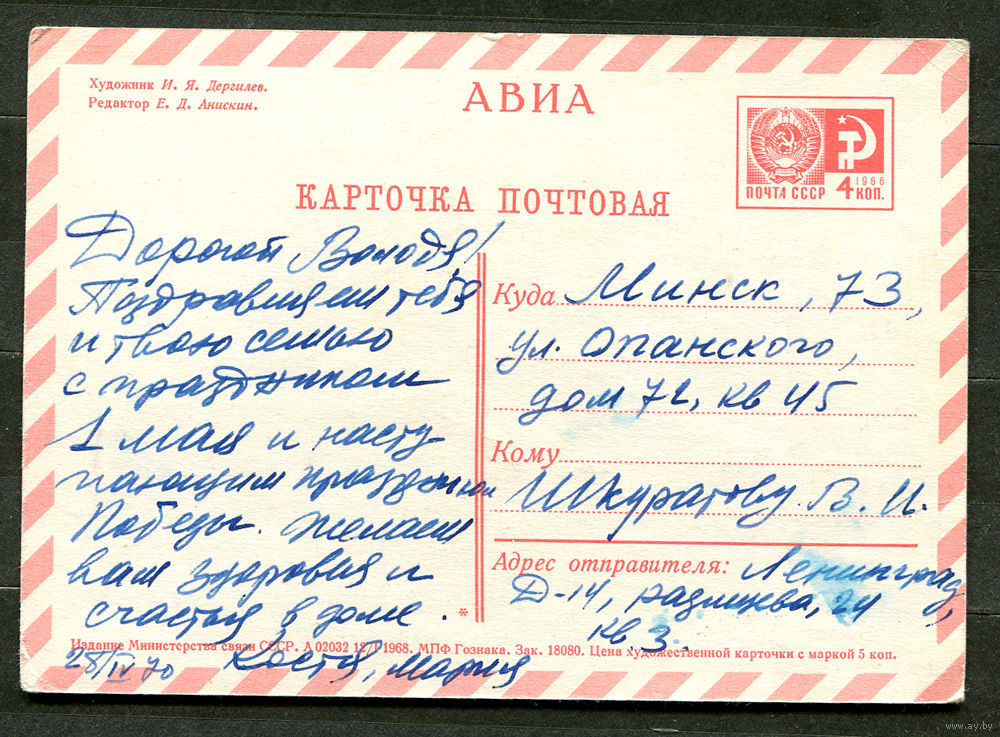 Художник И. Я. Дергилев.
Редактор Е. Д. Анискин.
АВИА
КАРТОЧКА ПОЧТОВАЯ
ПОЧТА СССР
1966
4 КОП.
Дорогой Володя!
Поздравляем тебя
и твою семью
с праздником
1 мая и насту-
пающим праздником
Победы. Желаем
вам здоровия и
счастья в доме.
*
Костя, Мария
28/IV 70
Куда Минск, 73,
ул. Опанского,
дом 72, кв 45
Кому
Шкуратову В. И.
Адрес отправителя: Ленинград,
Д-14, радищева, 24
кв 3.
Издание Министерства связи СССР. А 02032 12/I 1968. МПФ Гознака. Зак. 18080. Цена художественной карточки с маркой 5 коп.
www.ay.by